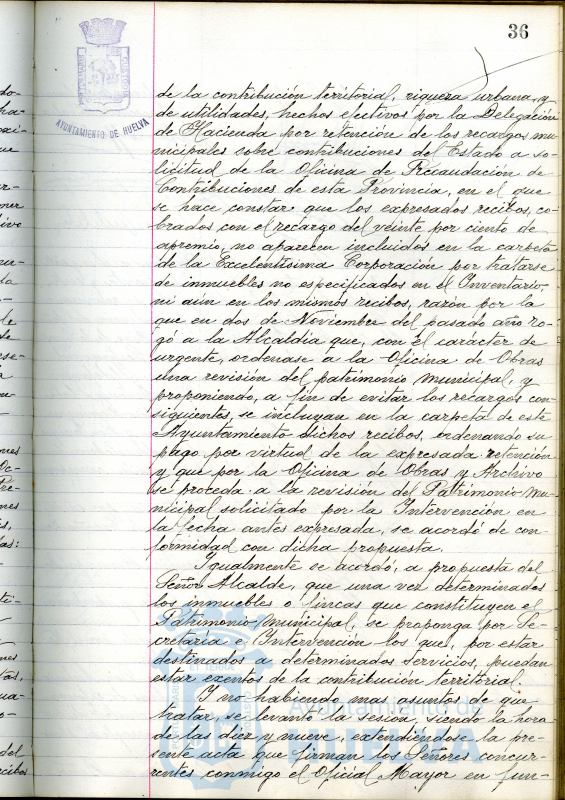 36
AYUNTAMIENTO DE HUELVA
de la contribución territorial, riqueza urbana, y
de utilidades, hechos efectivos por la Delegación
de Hacienda por retención de los recargos mu-
nicipales sobre contribuciones del Estado a so-
licitud de la Oficina de Recaudación de
Contribuciones de esta Provincia, en el que
se hace constar que los expresados recibos, co-
brados con el recargo del veinte por ciento de
apremio, no aparecen incluidos en la carpeta
de la Excelentísima Corporación por tratarse
de inmuebles no especificados en el Inventario,
ni aun en los mismos recibos, razón por la
que en dos de Noviembre del pasado año ro-
gó a la Alcaldía que, con el carácter de
urgente, ordenase a la Oficina de Obras
una revisión del patrimonio municipal, y
proponiendo, a fin de evitar los recargos con-
siguientes, se incluyan en la carpeta de este
Ayuntamiento dichos recibos, ordenando su
pago por virtud de la expresada retención
y que por la Oficina de Obras y Archivo
se proceda a la revisión del Patrimonio Mu-
nicipal solicitado por la Intervención en
la fecha antes expresada, se acordó de con-
formidad con dicha propuesta.
Igualmente se acordó, a propuesta del
Señor Alcalde, que una vez determinados
los inmuebles o fincas que constituyen el
Patrimonio Municipal, se proponga por Se-
cretaría e Intervención los que, por estar
destinados a determinados servicios, puedan
estar exentos de la contribución territorial.
Y no habiendo mas asunto de que
tratar se levantó la sesión, siendo la hora
de las diez y nueve, extendiéndose la pre-
sente acta que firman los Señores concur-
rentes conmigo el Oficial Mayor en fun-
Ayuntamiento de
HUELVA